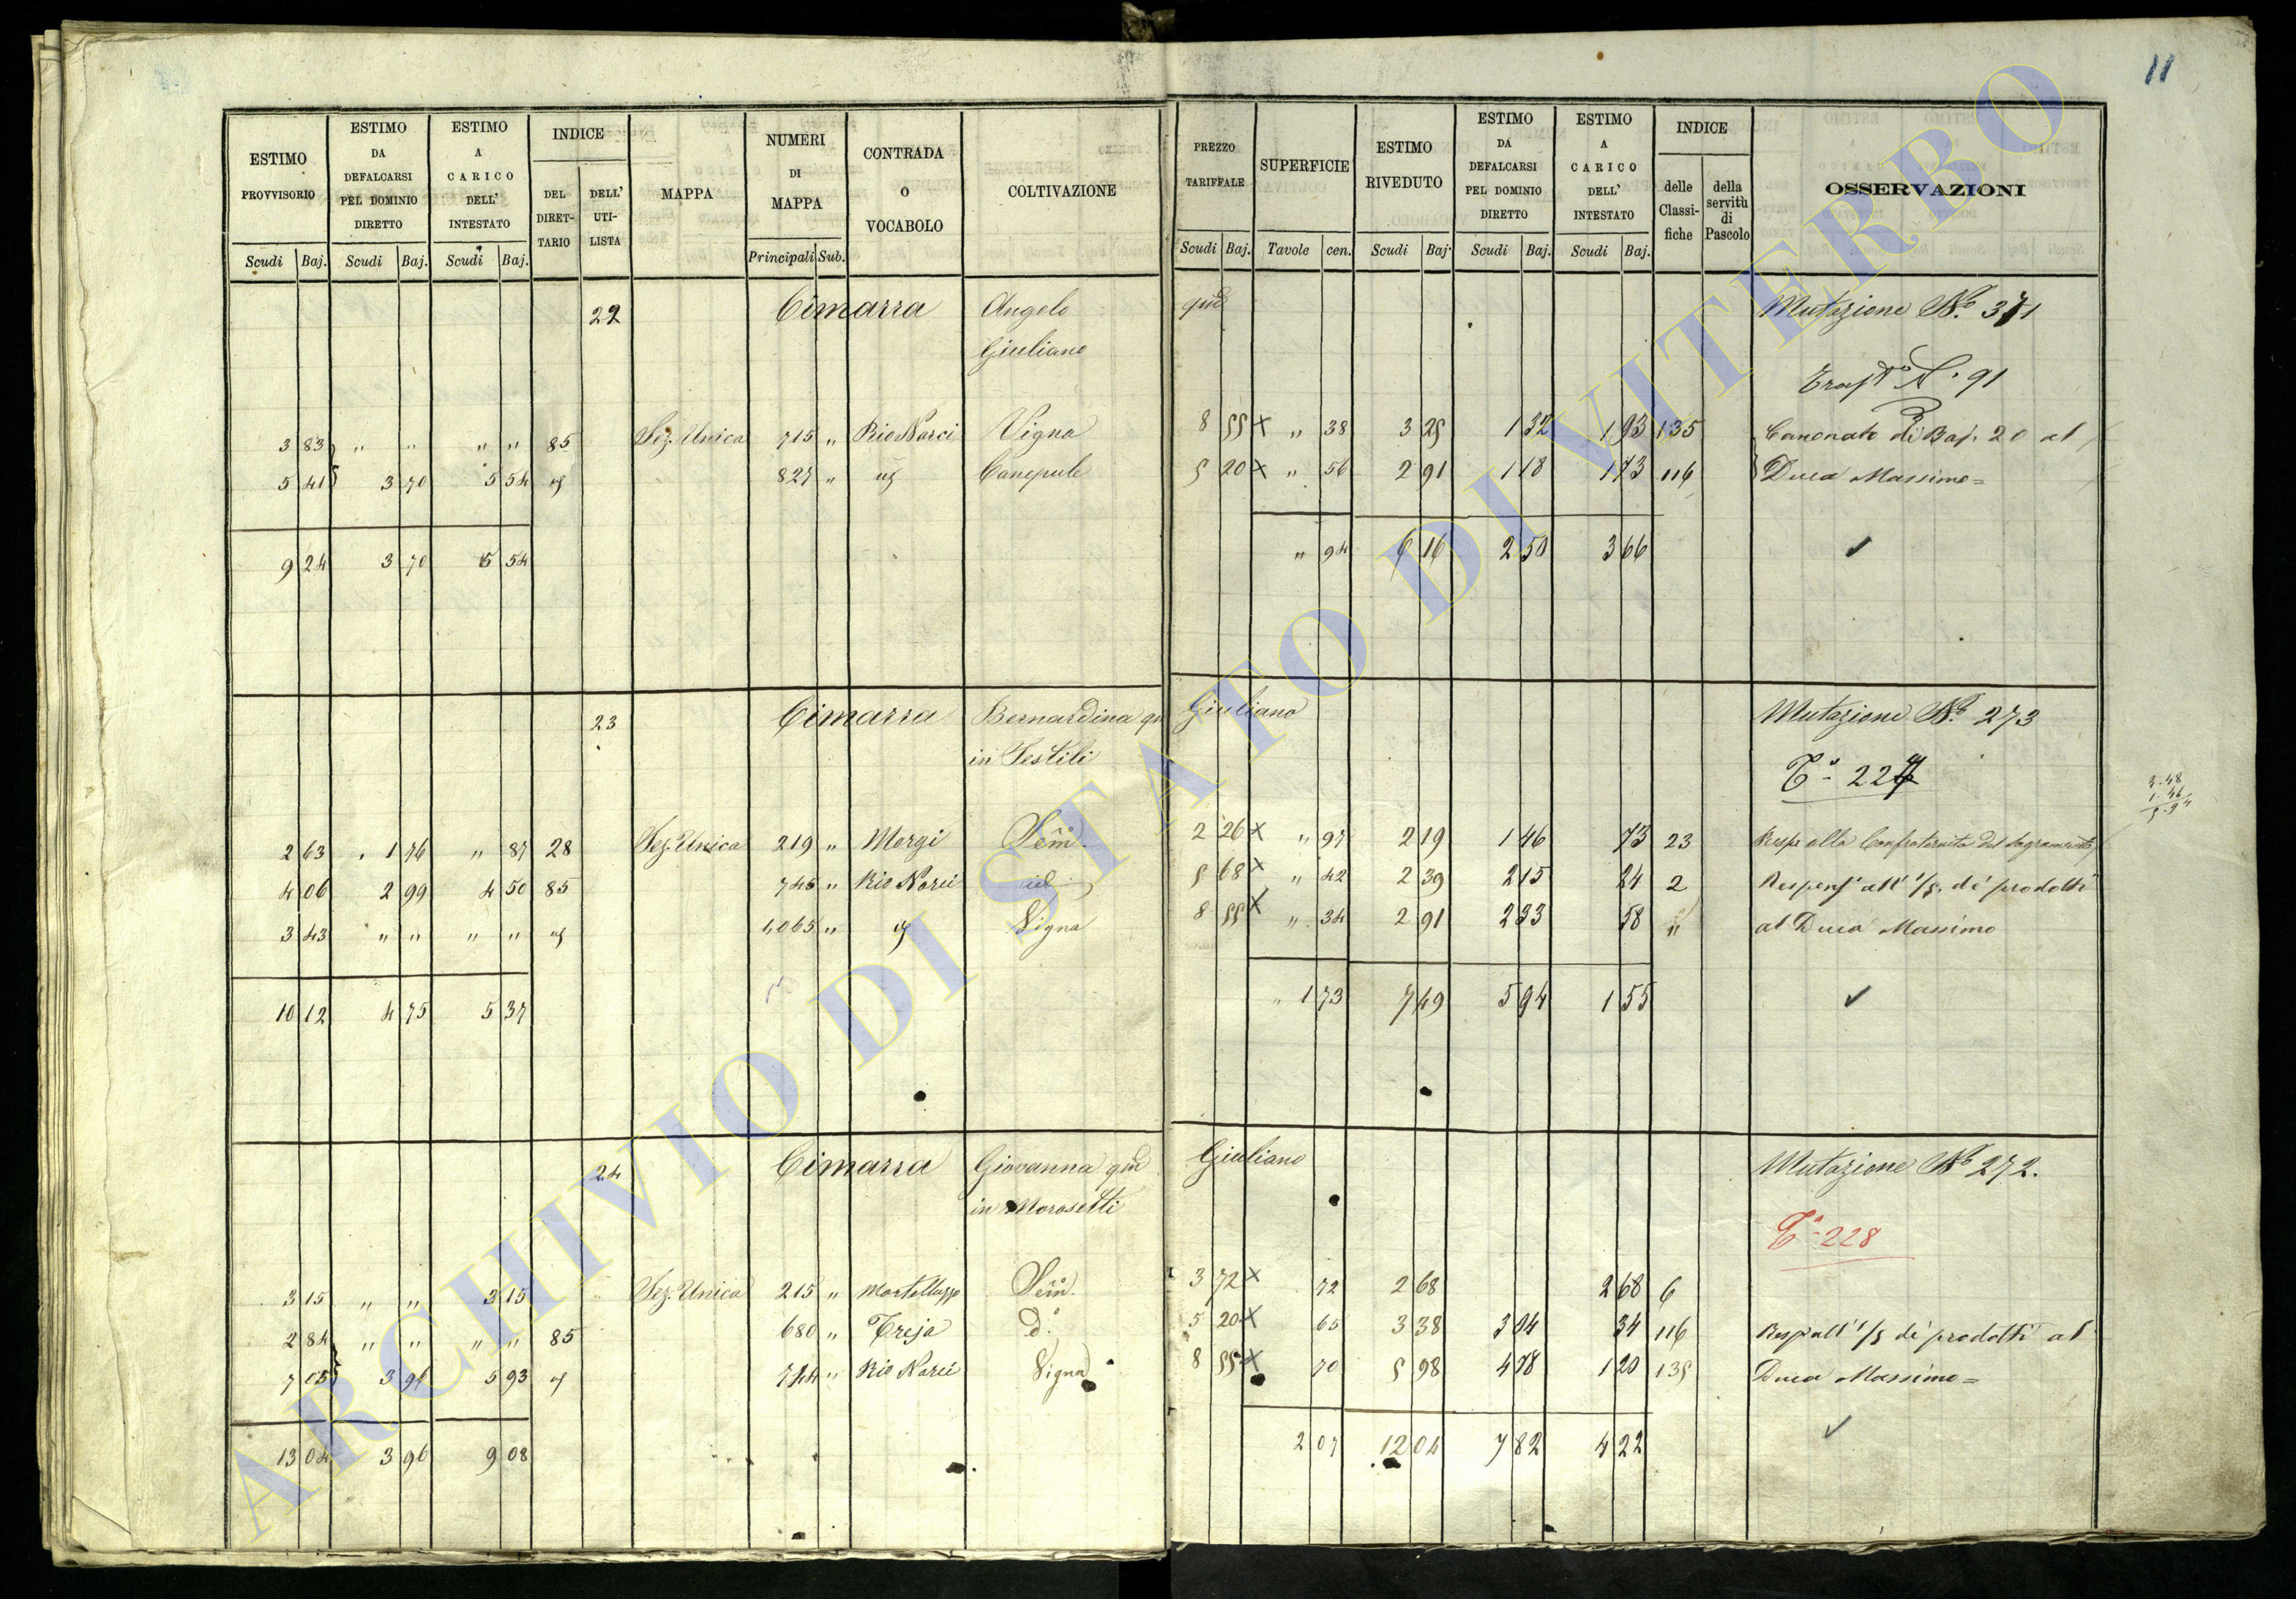 11
ESTIMO PROVVISORIO Scudi Baj. ESTIMO DA DEFALCARSI PEL DOMINIO DIRETTO Scudi Baj. ESTIMO A CARICO DELL' INTESTATO Scudi Baj. INDICE DEL DIRETTARIO DELL' UTILISTA MAPPA NUMERI DI MAPPA Principali Sub. CONTRADA O VOCABOLO COLTIVAZIONE PREZZO TARIFFALE Scudi Baj. SUPERFICIE Tavole cen. ESTIMO RIVEDUTO Scudi Baj. ESTIMO DA DEFALCARSI PEL DOMINIO DIRETTO Scudi Baj. ESTIMO A CARICO DELL' INTESTATO Scudi Baj. INDICE delle Classifiche della servitù di Pascolo OSSERVAZIONI
22 Cimarra Angelo qm̄ Mutazione N.º 371
Giuliano
Trasp.to N.º 91
3 83 " " " " 85 Sez. Unica 715 " Rio Narci Vigna 8 55 x " 38 3 25 1 32 1 93 135 Canonato di Baj. 20 al
5 41 3 70 5 54 id 827 " id Canepule 5 20 x " 56 2 91 1 18 1 73 116 Duca Massimo =
9 24 3 70 5 54 " 94 6 16 2 50 3 66 ✓
23 Cimarra Bernardina qm Giuliano Mutazione N.º 273
in Sestili
T.º 227
3.48
1.46
5.94
2 63 1 76 " 87 28 Sez. Unica 219 " Morgi Sem̄.º 2 26 x " 97 2 19 1 46 73 23 Resp. alla Confraternita del Sagramento
4 06 2 99 4 50 85 745 " Rio Narci id 5 68 x " 42 2 39 2 15 24 2 Respons. all' 1/5 di prodotti
3 43 " " " " id 1,065 " id Vigna 8 55 x " 34 2 91 2 33 58 " al Duca Massimo
10 12 4 75 5 37 " 1 73 7 49 5 94 1 55 ✓
24 Cimarra Giovanna qm̄ Giuliano Mutazione N.º 272.
in Morosetti
T.º 228
3 15 " " 3 15 Sez. Unica 215 " Martelluzzo Sem̄.º 3 72 x 72 2 68 2 68 6
2 84 " " " " 85 680 " Treja d.º 5 20 x 65 3 38 3 04 34 116 Resp. all' 1/5 di prodotti al
7 05 3 96 5 93 id 744 " Rio Narci Vigna 8 55 x 70 5 98 4 78 1 20 135 Duca Massimo =
13 04 3 96 9 08 2 07 12 04 7 82 4 22 ✓
ARCHIVIO DI STATO DI VITERBO